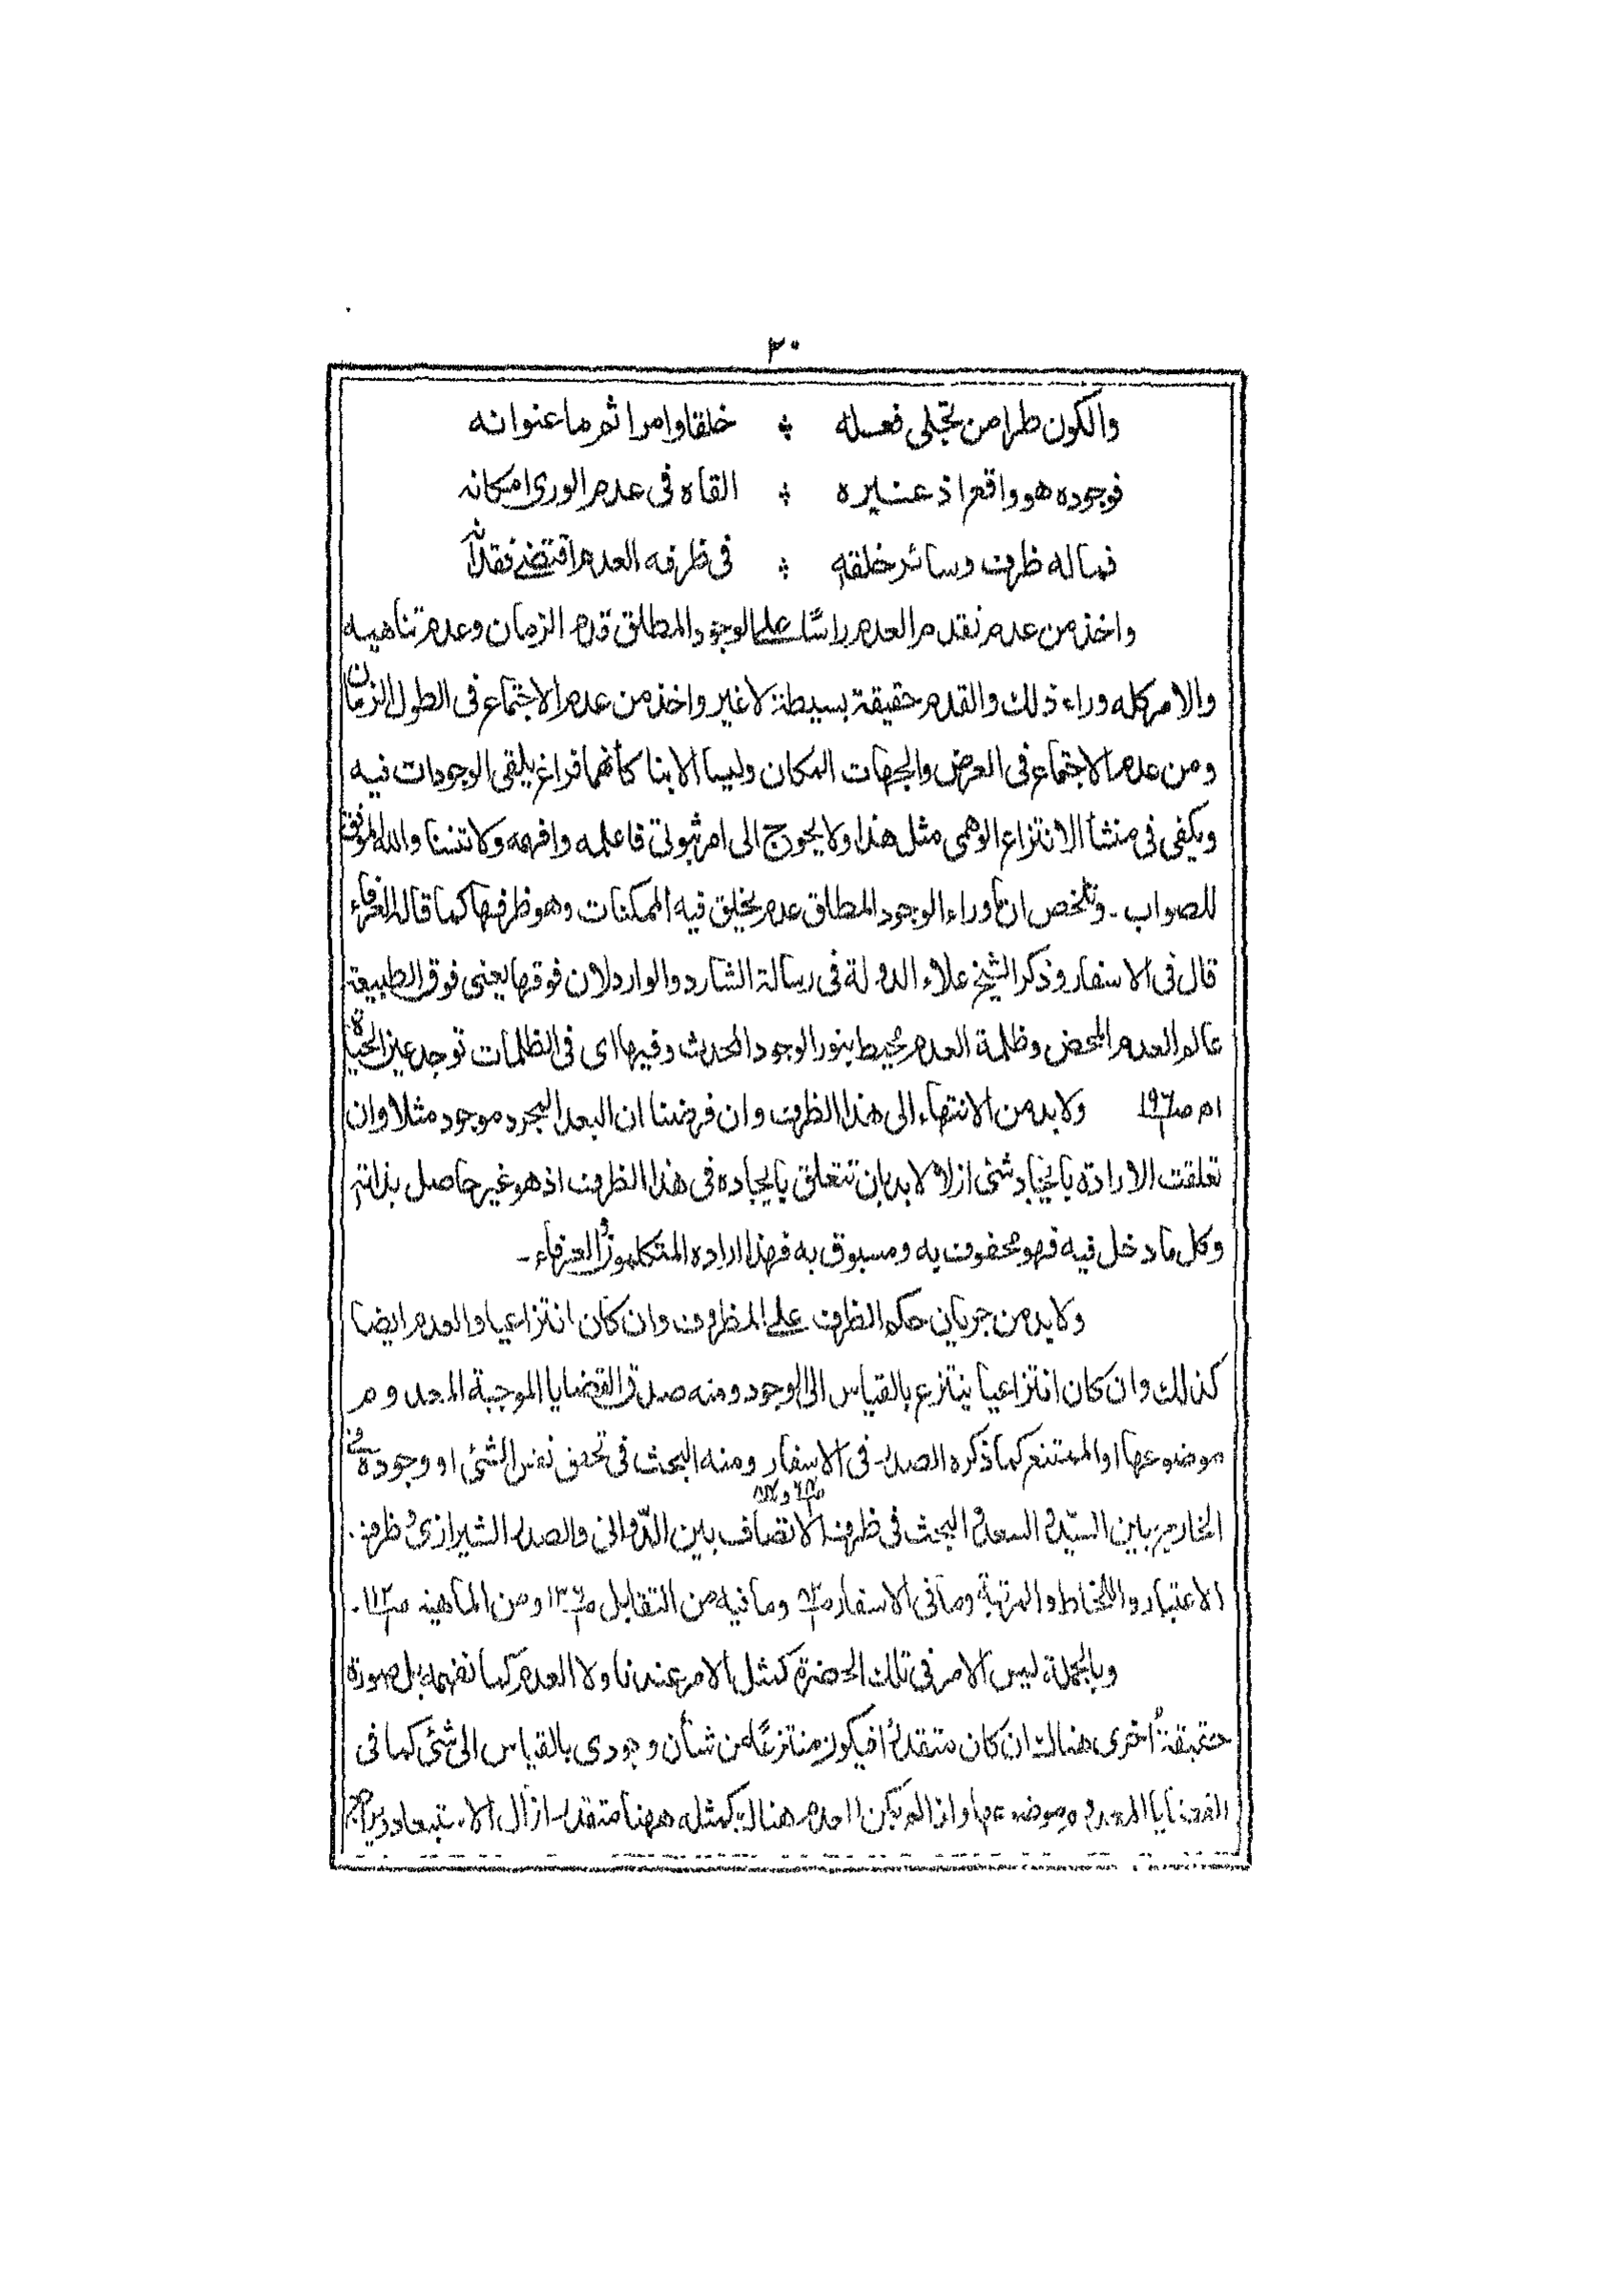 ٣٠
والكون طرا من تجلى فعله ؞ خلقا وامرا ثم ما عنوانه
فوجوده هو واقع اذ غيره ؞ القاه فى عدم الورى امكانه
فما له ظرف وسائر خلقه ؞ فى ظرفه العدم اقتضى فقدانه
واخذ من عدم تقدم العدم راسًا على الوجود المطلق قدم الزمان وعدم تناهيه
والامر كله وراء ذلك والقدم حقيقة بسيطة لا غير واخذ من عدم الاجتماع فى الطول الزمان
ومن عدم الاجتماع فى العرض والجهات المكان وليسا الا بنا كأنهما فراغ يلقى الوجودات فيه
ويكفى فى منشأ الانتزاع الوهمى مثل هذا ولا يحوج الى امر ثبوتى فاعلمه وافهمه ولا تنسنا والله الموفق
للصواب ـ وتلخص ان ما وراء الوجود المطلق عدم يخلق فيه الممكنات وهو ظرفها كما قاله العرفاء
قال فى الاسفار وذكر الشيخ علاء الدولة فى رسالة الشارد والوارد لان فوقها يعنى فوق الطبيعة
عالم العدم المحض وظلمة العدم محيط بنور الوجود المحدث وفيها اى فى الظلمات توجد عين الحياة
اه ص١٩٦ ولا بد من الانتهاء الى هذا الظرف وان فرضنا ان البعد المجرد موجود مثلا وان
تعلقت الارادة بايجاد شئ ازلا لا بد بان تتعلق بايجاده فى هذا الظرف اذ هو غير حاصل بذاته
وكل ما دخل فيه فهو محفوف به ومسبوق به فهذا اراده المتكلمون والعرفاء ـ
ولا بد من جريان حكم الظرف على المظروف وان كان انتزاعيا والعدم ايضا
كذلك وان كان انتزاعيا ينتزع بالقياس الى الوجود ومنه صدق القضايا الموجبة المعدوم
موضوعها او الممتنع كما ذكره الصدر فى الاسفار ومنه البحث فى تحقق نفس الشئ او وجوده فى
الخارج بين السيد والسعد والبحث فى ظرف الاتصاف بين الدوانى والصدر الشيرازى وظرف
الاعتبار واللحاظ والمرتبة وما فى الاسفار وما فيه من التقابل ص١٣٦ ومن الماهية
وبالجملة ليس الامر فى تلك الحضرة كمثل الامر عندنا ولا العدم كما نفهمه بل صورة
حقيقة اخرى هناك ان كان متقدرا فيكون منتزعًا عن شأن وجودى بالقياس الى شئ كما فى
القضايا المعدوم موضوعها واذا لم يكن العدم هناك كمثله ههنا متقدرا زال الاستبعاد